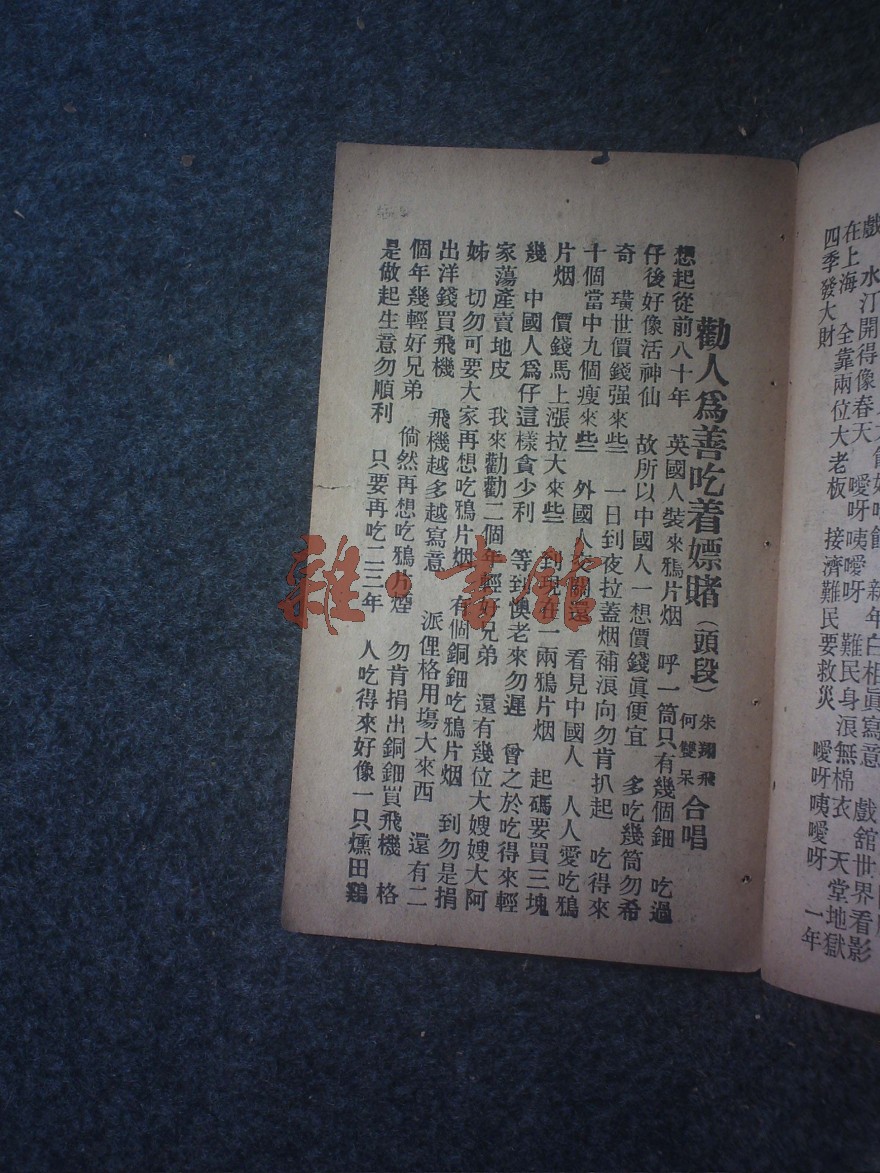 戲
在上海 全靠兩位大老板 接濟難民要救災 噯呀咦噯呀 一年
四季發大財
勸人爲善吃着嫖賭(頭段)朱翔飛 何雙呆 合唱
想起從前八十年 英國人裝來鴉片烟 呼一筒只有幾個鈿 吃過
仔後好像活神仙 故所以中國人一想價錢眞便宜 多吃幾筒勿希
奇 璜世價錢强來些 一日到夜拉蓋烟補浪向勿肯扒起 吃得來
十個當中九個瘦來些 外國人交關還 看見中國人 人人愛吃鴉
片烟 價錢馬上漲拉大來些 到現在一兩鴉片烟 起碼要買三塊
幾 中國人爲仔這樣貪少利 等到懊老來勿遲 曾之於吃得來輕
家蕩產賣地皮 我來勸勸二個年輕好兄弟 還有幾位大嫂嫂大阿
姊 切勿可要大家再想吃鴉片烟 有個銅鈿吃鴉片烟 到勿是捐
出洋錢買飛機 飛機越多越寫意 派俚格用塲大來西 還有二
個年幾輕好兄弟 倘然再想吃鴉片煙 勿肯捐出銅鈿買飛機 格
是做起生意勿順利 只要再吃二三年 人吃得來好像一只燻田鷄
雜·書館